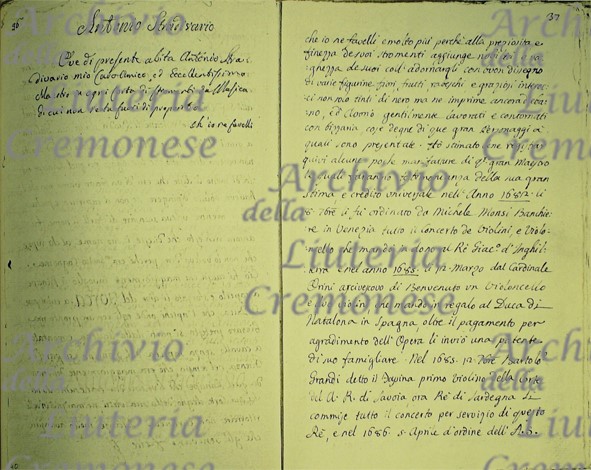 36
Antonio Stradivario
Che di presente abita Antonio Stra
divario mio Caro Amico, ed Eccellentissimo
Maestro in ogni sorta di stromenti da Musica
di cui non sarà fuori di proposito
ch'io ne favelli
37
che io ne favelli e molto più perchè alla preziosità e
finezza de suoi stromenti aggiunge
ghezza de suoi col adornargli con buon disegno
di varie figurine, fiori, frutti, rabeschi e graziosi
ci non solo tinti di nero ma ne imprime ancora
ed avorio gentilmente lavorati e contornati
con bizaria cose degne di que gran Personaggi a
quali sono presentate. Hò stimato bene
quivi alcune poche manifatture di q.to gran Maestro
le quali faranno testimonianza della sua gran
stima e credito universale nell'Anno 1682. li
8 7bre li fù ordinato da Michele Monsi Banchie
re in Venezia tutto il concerto de Violini, e Violo
ncello che mandò in dono al Rè Giac.o d'Inghil
terra e nel anno 1685. li 12 Marzo dal Cardinale
Orini arcivescovo di Benevento un Violoncello
e due violini che mandò in regalo al Duca di
Natalona in Spagna, oltre il pagamento per
agradimento dell'Opera li inviò una patente
di suo famigliare. Nel 1685. 12 7bre Bartolo
Grandi detto il Fagina primo violino della corte
del A. R. di Savoja ora Rè di Sardegna li
commise tutto il concerto per servigio di questo
Rè, e nel 1686. 5 Aprile d'ordine dell'
Archivio
della
Liuteria
Cremonese
Archivio
della
Liuteria
Cremonese
Archivio
della
Liuteria
Cremonese
Archivio
della
Liuteria
Cremonese